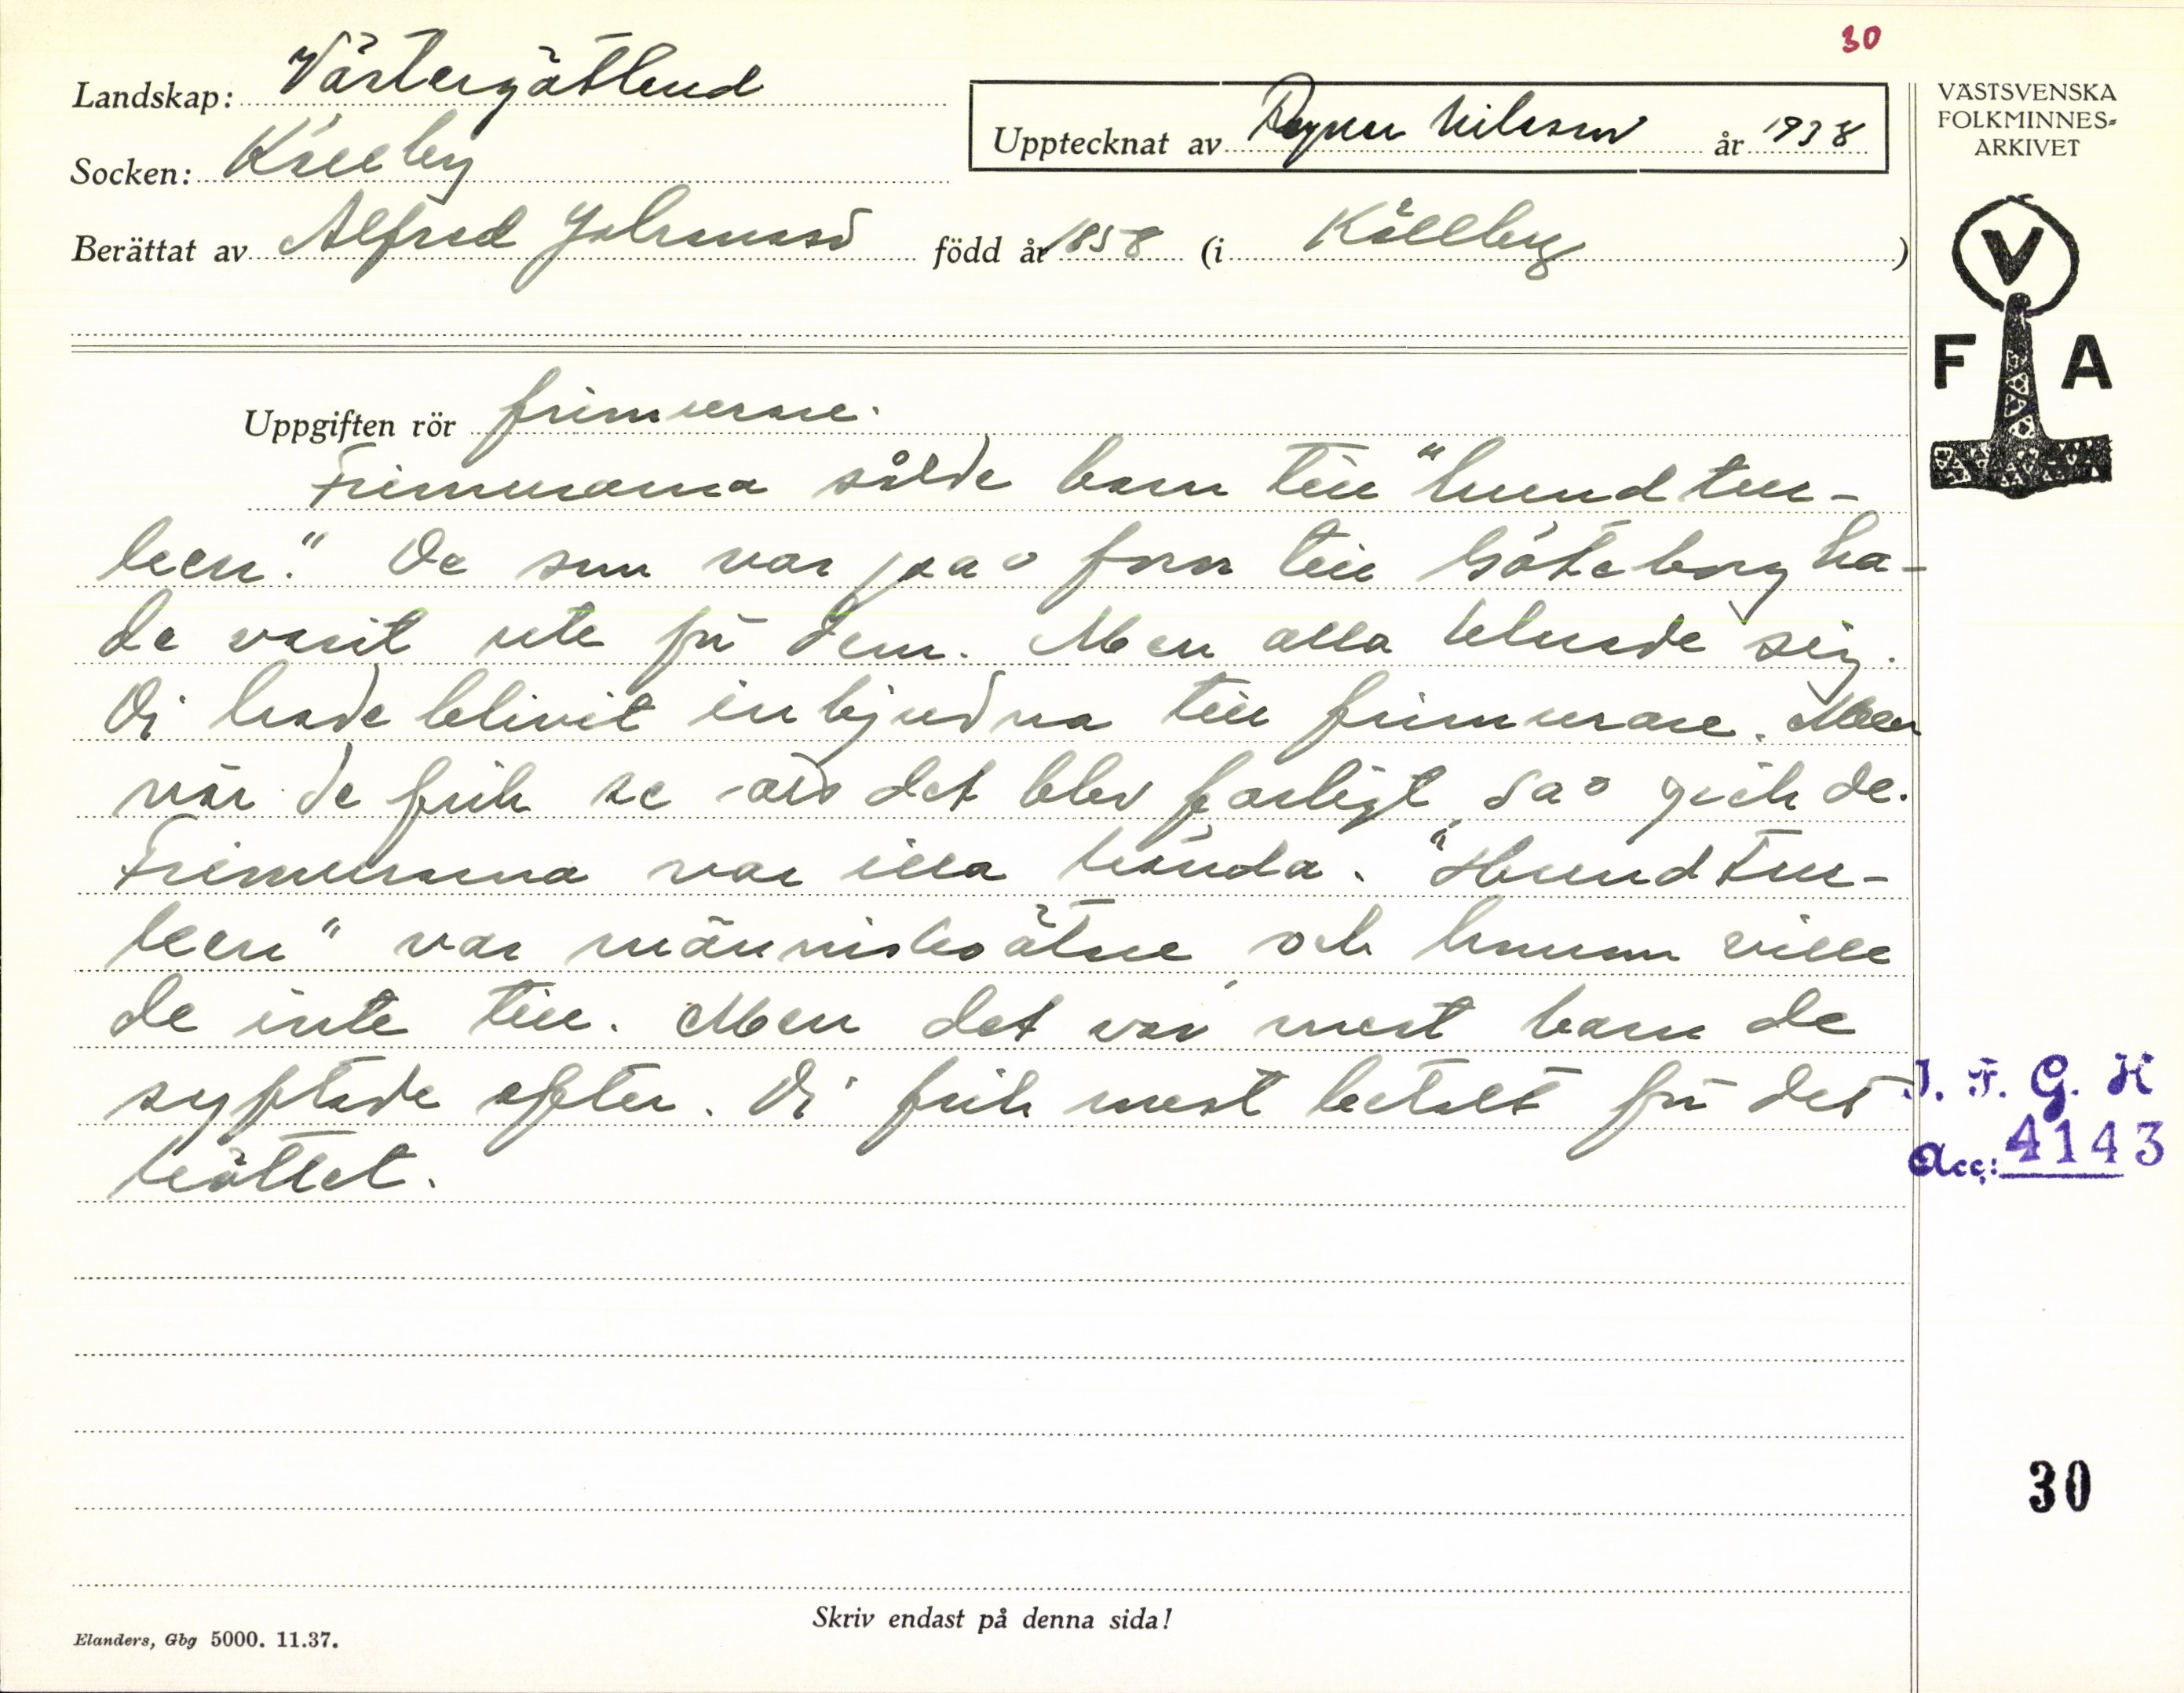 30
Landskap: Västergötland
Socken: Källby
Upptecknat av Ragnar Nilsson år 1938
Berättat av Alfred Johansson född år 1858 (i Källby )
VÄSTSVENSKA
FOLKMINNES-
ARKIVET
V
F A
Uppgiften rör frimurare.
Frimurarna sålde barn till "hundtur-
ken." De som var paa forr till Göteborg ha-
de varit ute för dem. Men alla klarade sig.
Di hade blivit inbjudna till frimurare. Men
när de fick se att det blev farligt, saa gick de.
Frimurarna var illa kända. "Hundtur-
ken" var människoätare, och honom ville
de inte till. Men det var mest barn de
syftade efter. Di fick mest betalt för det
köttet.
I. F. G. H
Acc: 4143
30
Skriv endast på denna sida!
Elanders, Gbg 5000. 11.37.